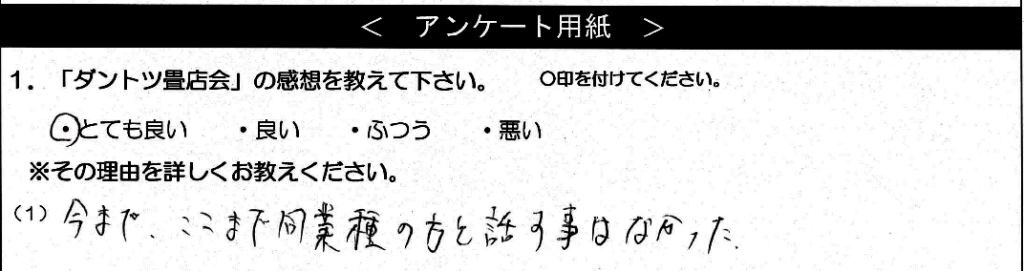 ＜ アンケート用紙 ＞
1．「ダントツ畳店会」の感想を教えて下さい。 ○印を付けてください。
・とても良い ・良い ・ふつう ・悪い
※その理由を詳しくお教えください。
(1) 今まで、ここまで同業種の方と話す事はなかった。